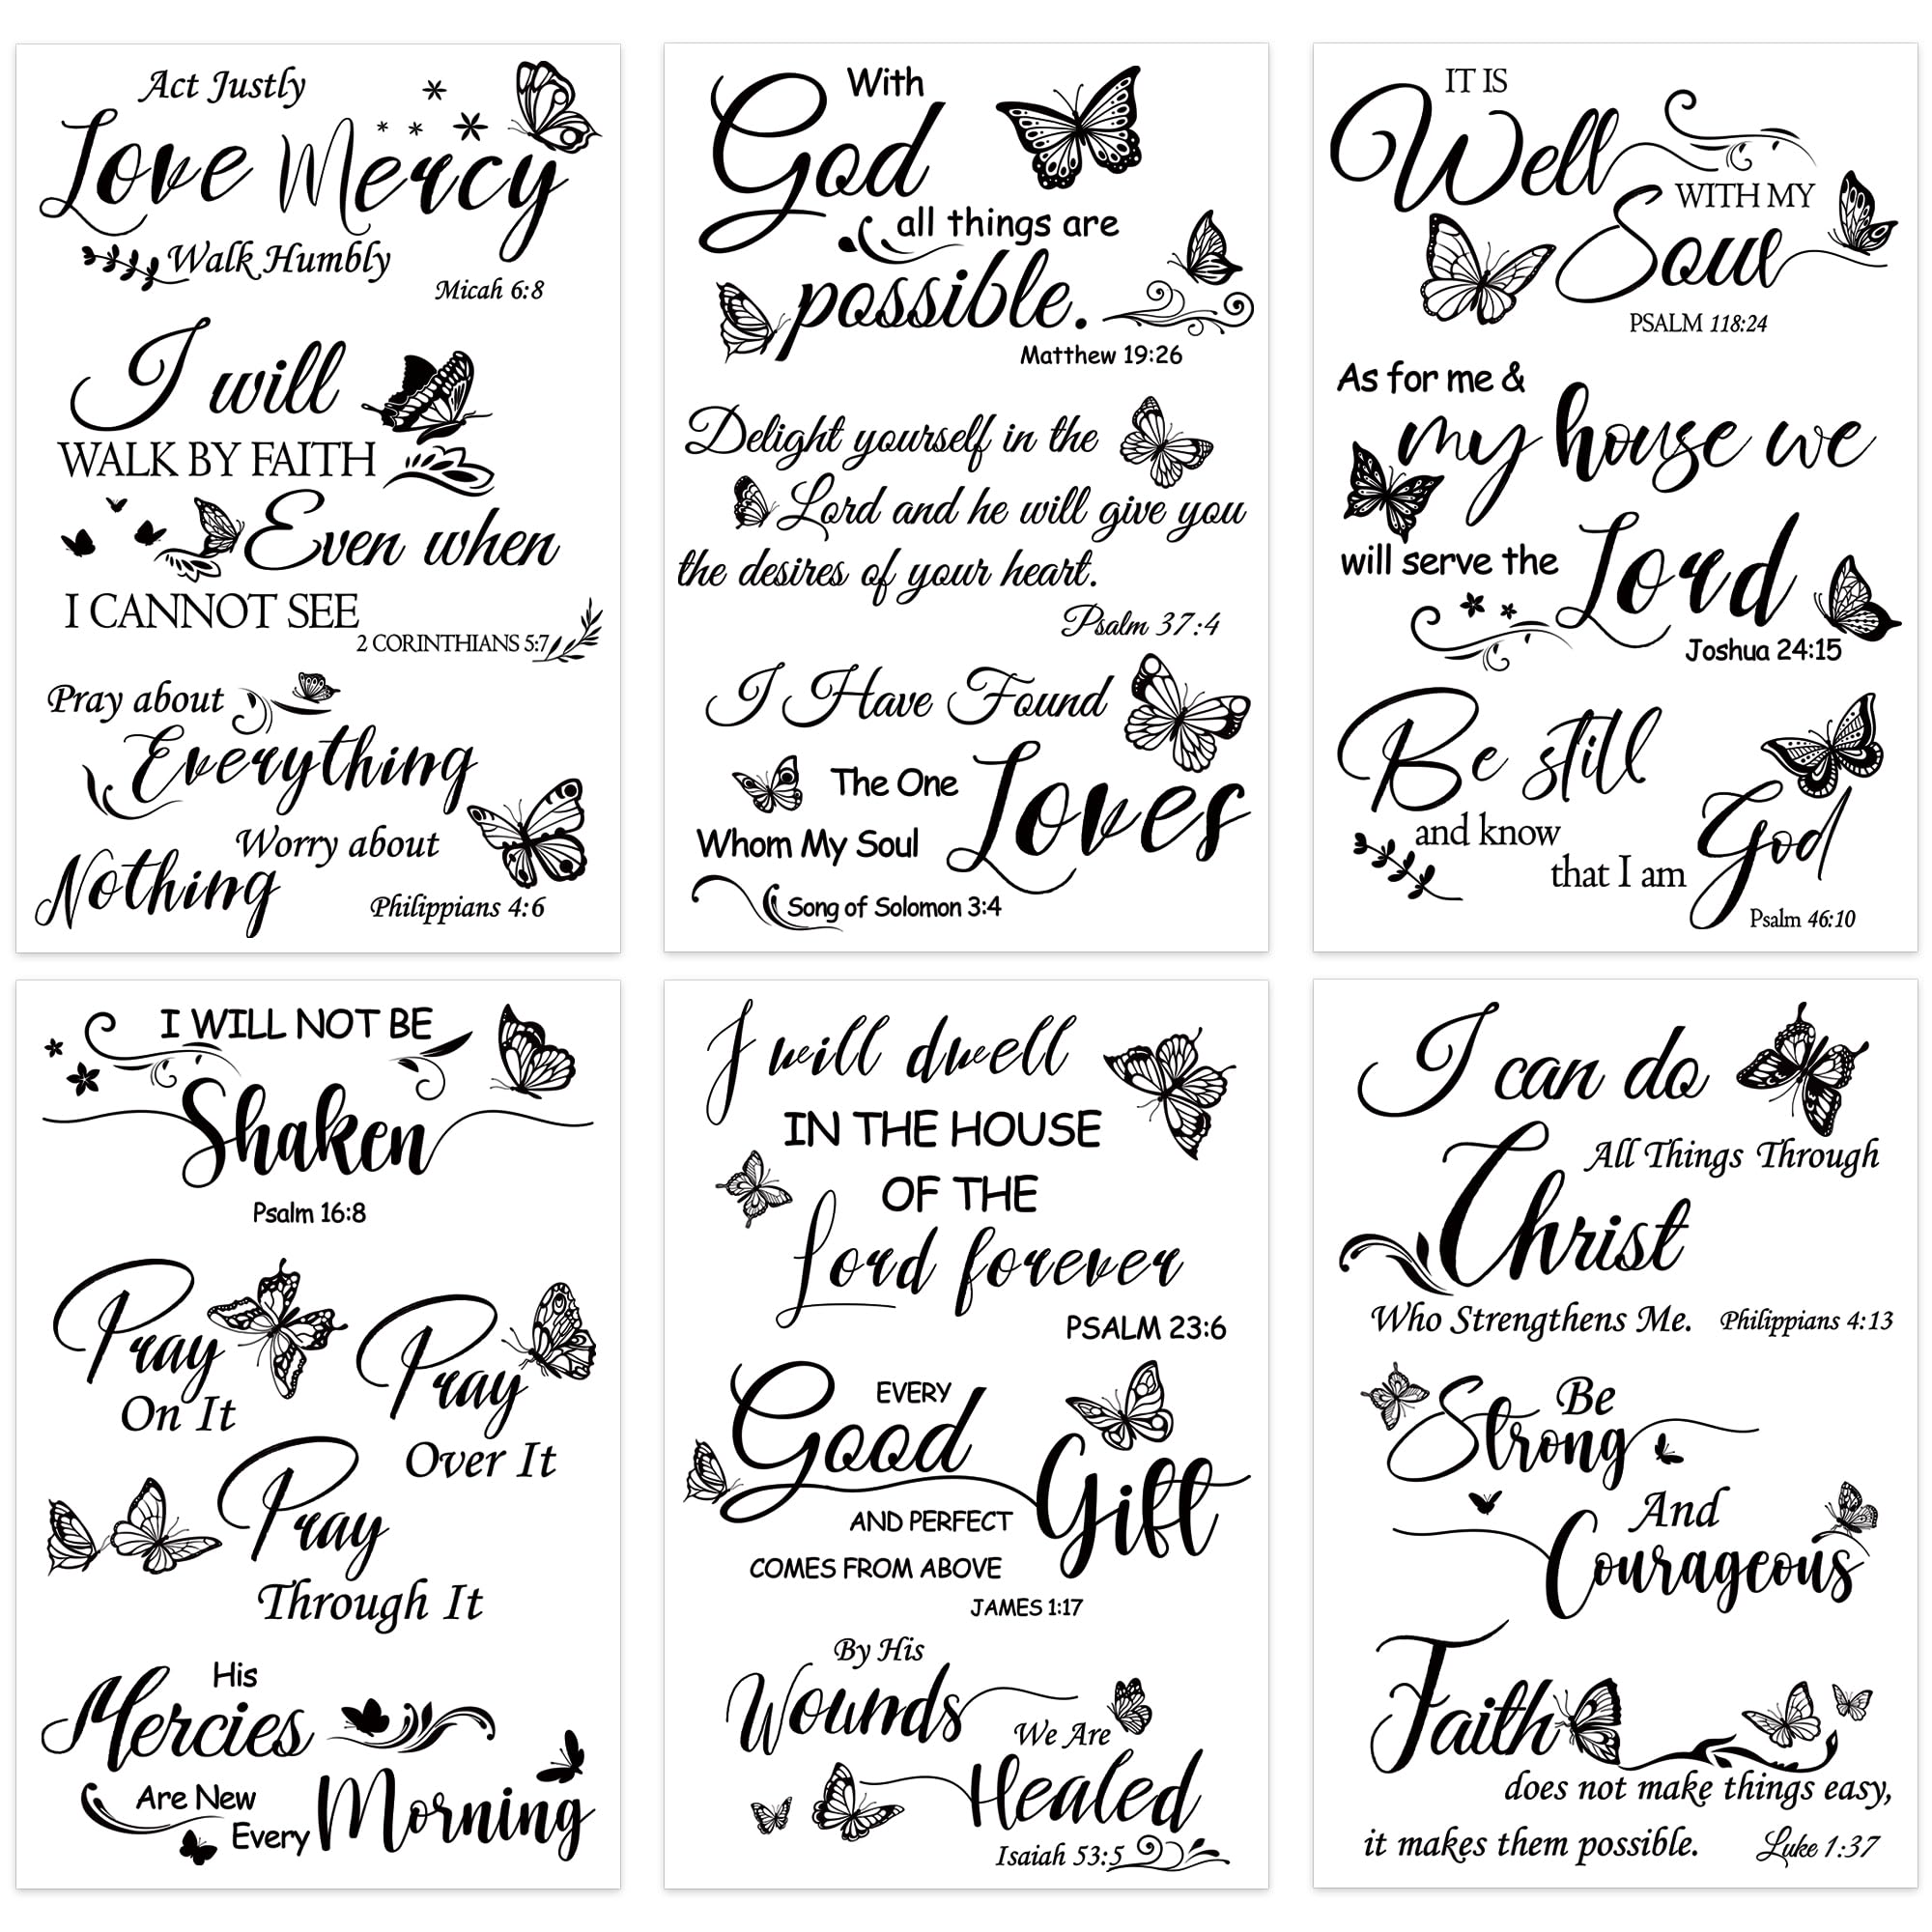 Act Justly
Love Mercy
Walk Humbly
Micah 6:8
I will
WALK BY FAITH
Even when
I CANNOT SEE
2 CORINTHIANS 5:7
Pray about
Everything
Worry about
Nothing
Philippians 4:6
With
God
all things are
possible.
Matthew 19:26
Delight yourself in the
Lord and he will give you
the desires of your heart.
Psalm 37:4
I Have Found
The One
Loves
Whom My Soul
Song of Solomon 3:4
IT IS
Well
WITH MY
Soul
PSALM 118:24
As for me &
my house we
will serve the
Lord
Joshua 24:15
Be still
and know
that I am
God
Psalm 46:10
I WILL NOT BE
Shaken
Psalm 16:8
Pray
On It
Pray
Over It
Pray
Through It
His
Mercies
Are New
Every
Morning
I will dwell
IN THE HOUSE
OF THE
Lord forever
PSALM 23:6
EVERY
Good
Gift
AND PERFECT
COMES FROM ABOVE
JAMES 1:17
By His
Wounds
We Are
Healed
Isaiah 53:5
I can do
All Things Through
Christ
Who Strengthens Me.
Philippians 4:13
Be
Strong
And
Courageous
Faith
does not make things easy,
it makes them possible.
Luke 1:37